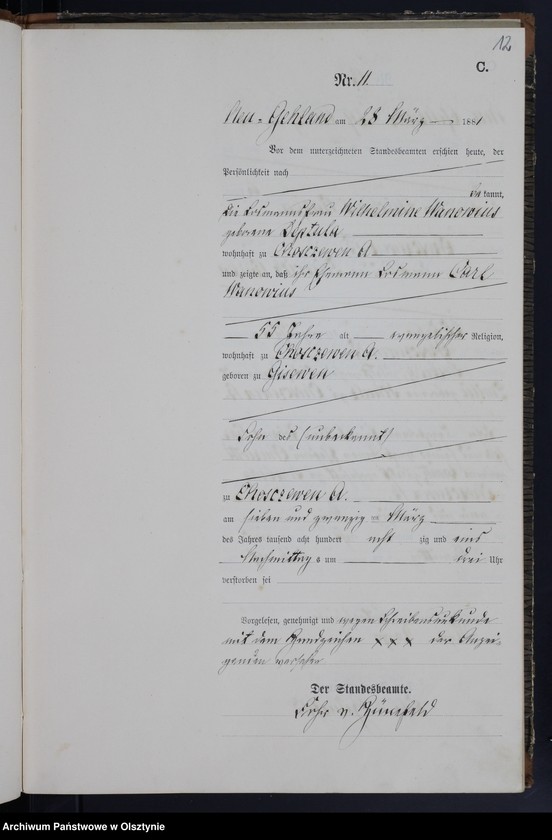 12
C.
Nr. 11.
Neu-Gehland am 28 März 1881
Vor dem unterzeichneten Standesbeamten erschien heute, der
Persönlichkeit nach
be kannt,
die Losmannsfrau Wilhelmine Wanowius
geborene Deptula
wohnhaft zu Choszczewen A
und zeigte an, daß ihr Ehemann Losmann Carl
Wanowius
55 Jahre alt evangelischer Religion,
wohnhaft zu Choszczewen A.
geboren zu Gisewen
Sohn des (unbekannt)
zu Choszczewen A.
am sieben und zwanzig ten März
des Jahres tausend acht hundert acht zig und eins
Nachmittag s um drei Uhr
verstorben sei
Vorgelesen, genehmigt und wegen Schreibensunkunde
mit dem Handzeichen xxx der Anzei-
genden versehen
Der Standesbeamte.
v.
Archiwum Państwowe w Olsztynie